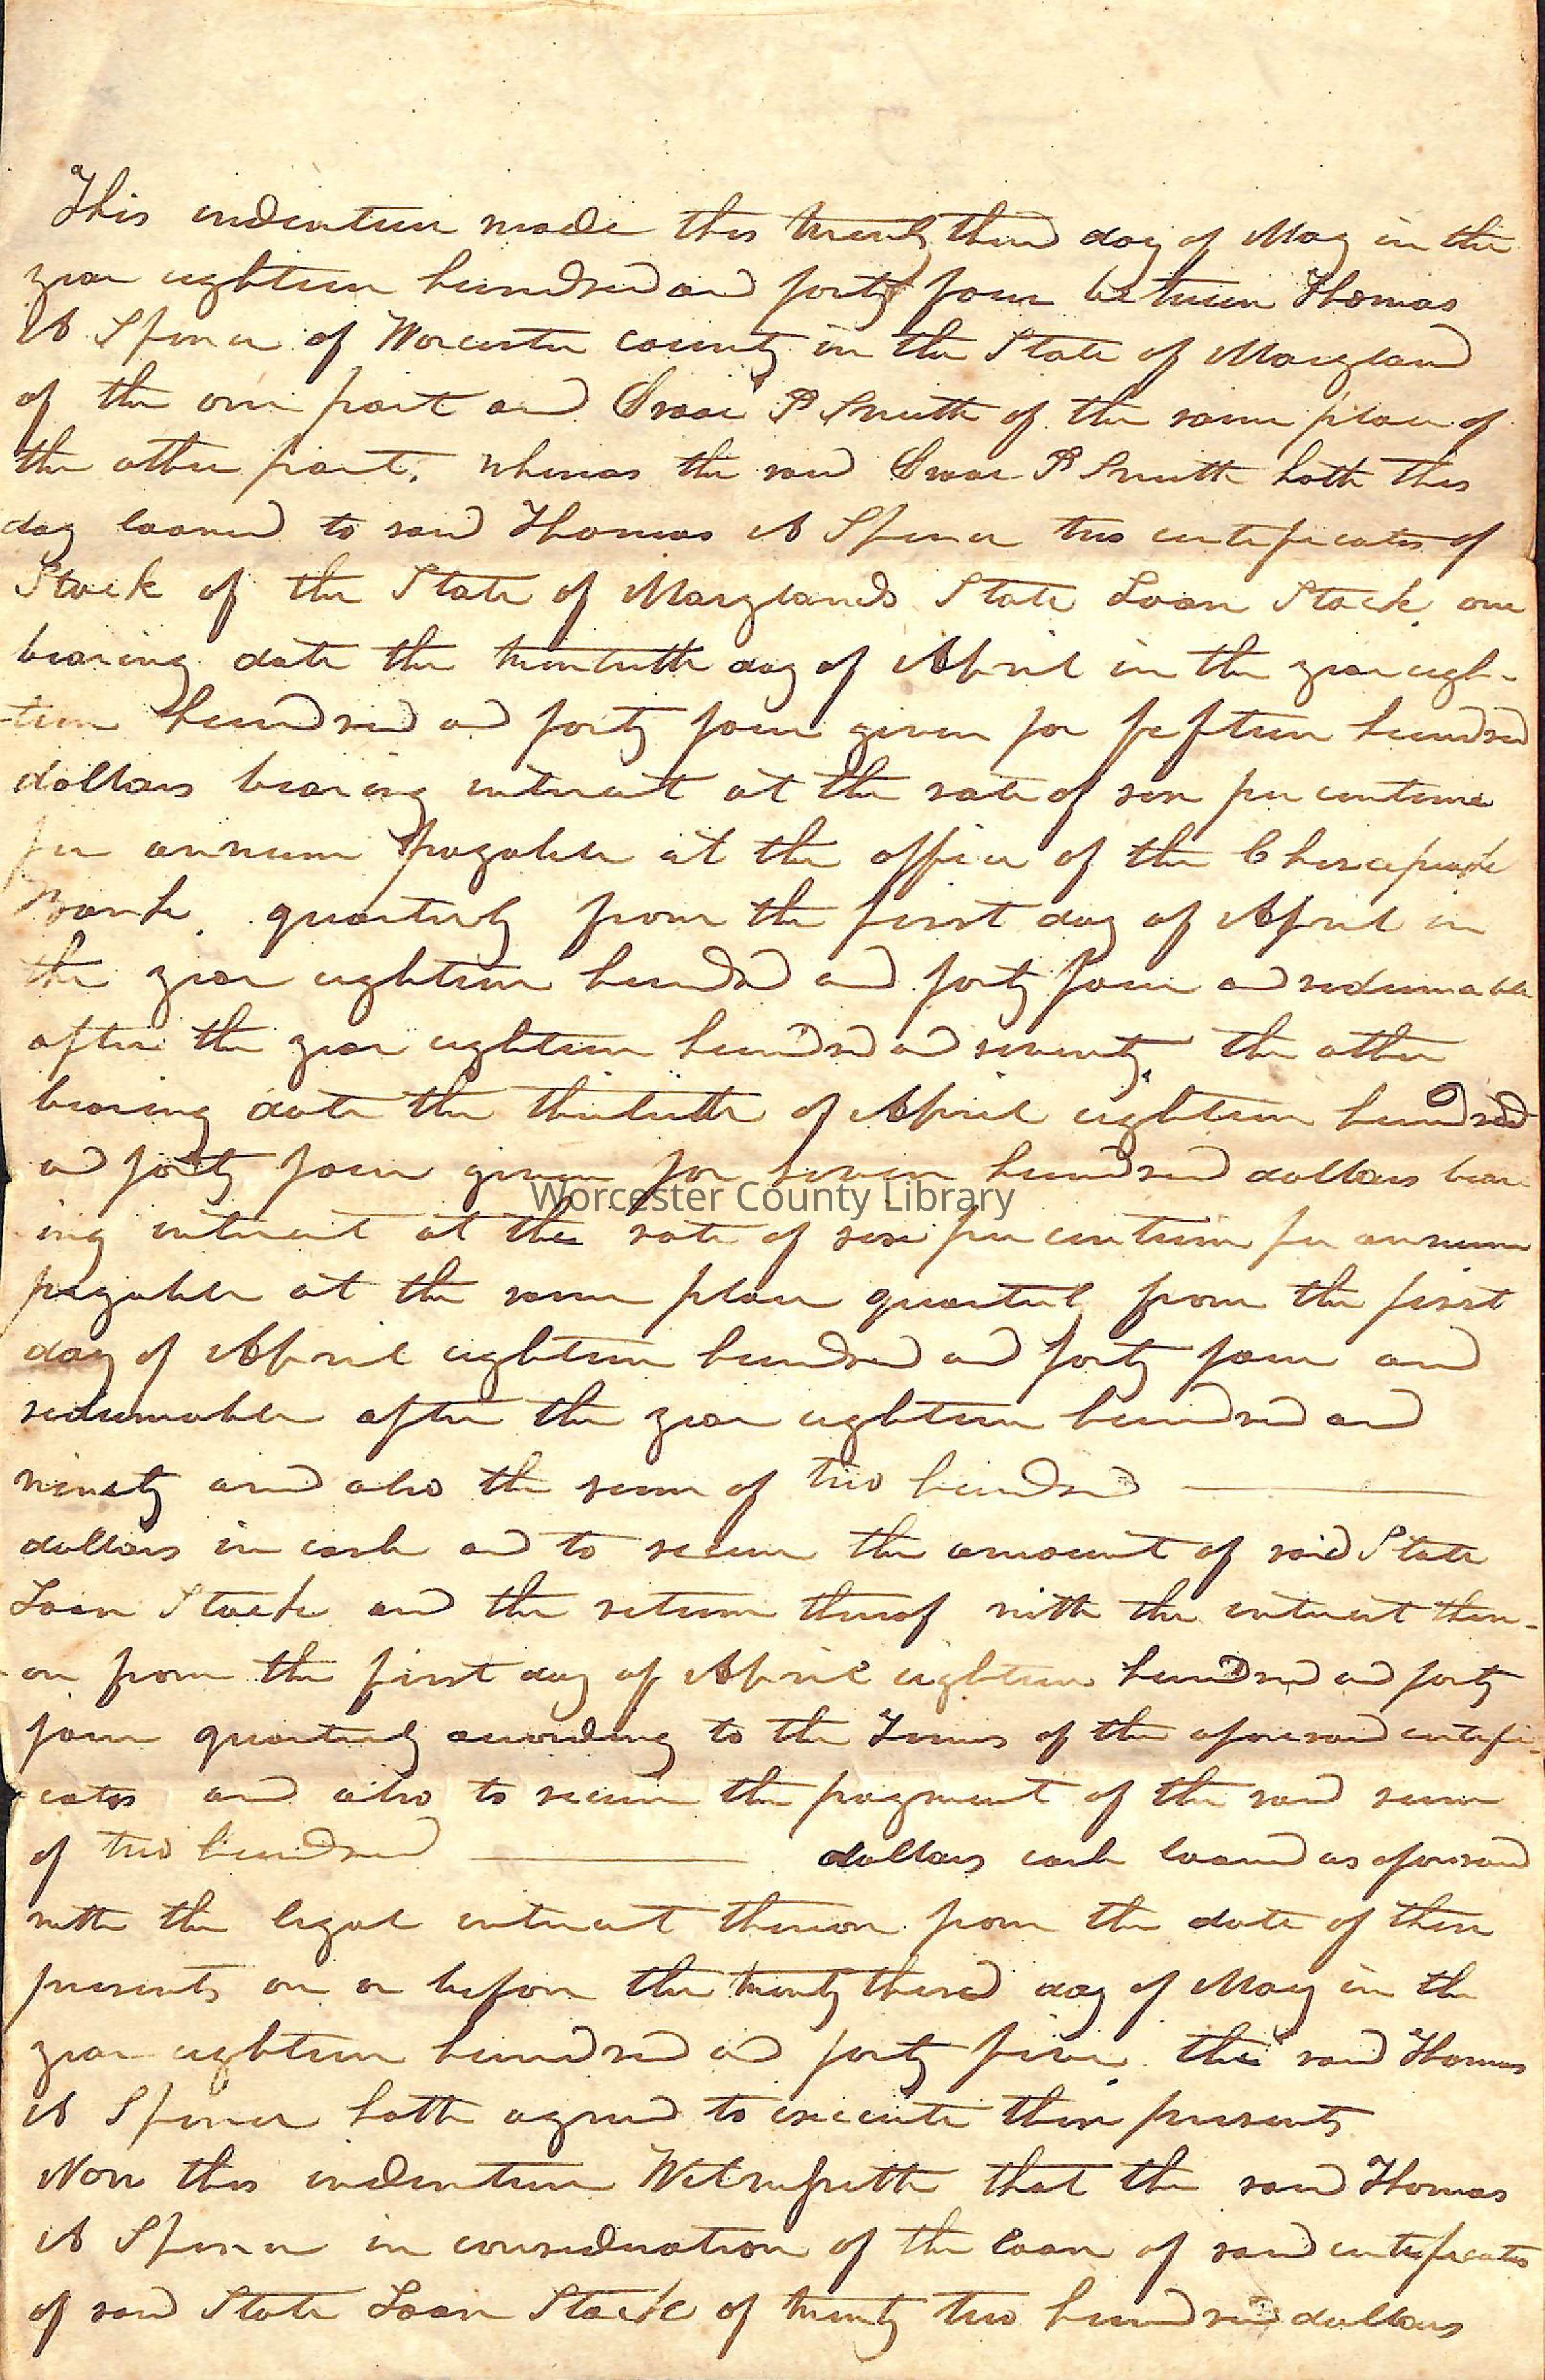 This indenture made this twenty third day of May in the
year eighteen hundred and forty four between Thomas
A Spence of Worcester County in the State of Maryland
of the one part and Isaac P Smith of the same place of
the other part. Whereas the said Isaac P Smith hath this
day loaned to said Thomas A Spence two certificates of
Stock of the State of Marylands State Loan Stock, one
bearing date the twentieth day of April in the year eigh-
-teen hundred and forty four given for fifteen hundred
dollars bearing interest at the rate of six per centime
per annum payable at the office of the Chesapeake
Bank. quarterly from the first day of April in
the year eighteen hundred and forty four and redeemable
after the year eighteen hundred and seventy, the other
bearing date the thirtieth of April eighteen hundred
and forty four given for seven hundred dollars bear-
ing interest at the rate of six per centum per annum
payable at the same place quarterly from the first
day of April eighteen hundred and forty four and
redeemable after the year eighteen hundred and
ninety and also the sum of two hundred
dollars in cash and to secure the amount of said State
Loan Stock and the return thereof with the interest there-
-on from the first day of April eighteen hundred and forty
four quarterly according to the Terms of the aforesaid certifi-
cates and also to secure the payment of the said sum
of two hundred dollars cash loaned as aforesaid
with the legal interest thereon from the date of these
presents on or before the twenty third day of May in the
year eighteen hundred and forty five. the said Thomas
A Spence hath agreed to execute these presents
Now this indenture Witnesseth that the said Thomas
A Spence in consideration of the loan of said certificates
of said State Loan Stock of twenty two hundred dollars
Worcester County Library